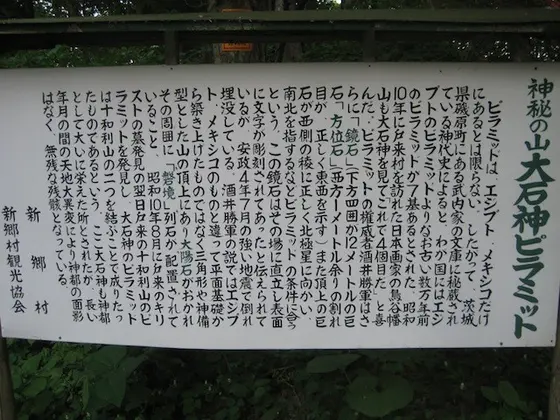 神秘の山大石神ピラミット
ピラミッドは、エジプト、メキシコだけ
にあるとは限らない。したがって、茨城
県磯原町にある武内家の文庫に秘蔵され
ている神代史によると、わか国にはエジ
プトのピラミットよりなお古い数万年前
のピラミットが7基あるとされた。昭和
10年に戸来村を訪れた日本画家の鳥谷幡
山も大石神を見て「これで4個目だ」と喜
んだ。ピラミットの権威者酒井勝軍はさ
らに「鏡石」(下方四囲か12メートルの巨
石)「方位石」(西方1メートル余りの割れ
目が、正しく東西を示す)また頂上の巨
石が西側の稜に正しく北極星に向かい、
南北を指するなどピラミッドの条件に合う
という。この鏡石はその場に直立し表面
に文字か彫刻されてあったと伝えられて
いるが、安政4年7月の強い地震で倒れ
埋没している。酒井勝軍の説ではエジプ
ト、メキシコのものと違って平面基礎か
ら築き上げたものではなく三角形や神備
型とした山の頂上にあり太陽石がおかれ
その周囲に「磐境」(列石)か配置されて
いること。昭和10年8月に戸来のキリ
ストの墓発見の翌日戸来の十和利山のピ
ラミットを発見し、大石神のピラミット
は十和利山の二つを結ぶことで成りたっ
たものであるという。ここ大石神も神都
として大いに栄えた所とされたか、長い
年月の間の天地大異変により神都の面影
はなく、無残な残骸となっている。
新郷村
新郷村観光協会